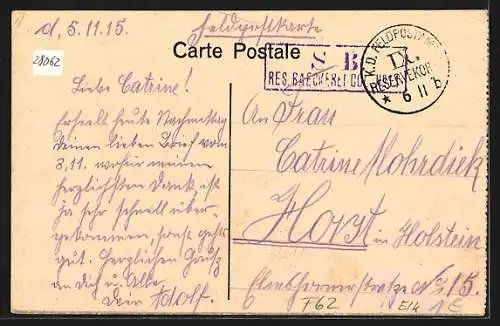 d, 5.11.15.
Feldpostkarte
28062
Carte Postale
S. B.
RES. BAECKEREI
K.D. FELDPOST
IX.
RESERVEKOR
* 6 11 b
Liebe Catrine!
Erhielt heute Nachmittag
Deinen lieben Brief vom
3,11. wofür meinen
herzlichsten Dank, ist
ja sehr schnell über-
gekommen, sonst geht's
gut. Herzlichen Gruß
an Dich u. Alle,
Dein Adolf.
An Frau
Catrine Mohrdiek
Horst in Holstein
Elmshornerstraße No 15.
F62
E14
1E